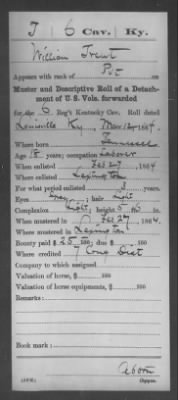 T | 6 Cav. | Ky.
William Trent
Appears with rank of Pvt
Muster and Descriptive Roll of a Detach-
ment of U. S. Vols. forwarded
for the 6 Reg't Kentucky Cav. Roll dated
Louisville Ky, 1864.
Where born
Age 18 years; occupation Laborer
When enlisted Feb 27, 1864
Where enlisted Lexington
For what period enlisted 3 years.
Eyes Gray; hair Light
Complexion Light; height 5 ft. in.
When mustered in Feb 27, 1864.
Where mustered in Lexington
Bounty paid $ 25 00/100; due $ /100
Where credited 7 Cong Dist
Company to which assigned
Valuation of horse, $ /100
Valuation of horse equipments, $ /100
Remarks:
Book mark:
Copyist.